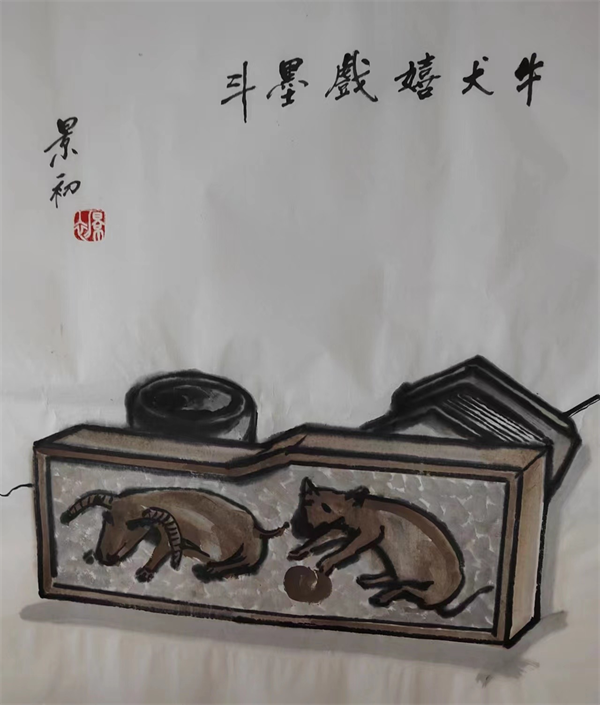 牛犬嬉戲墨斗
景初
景初